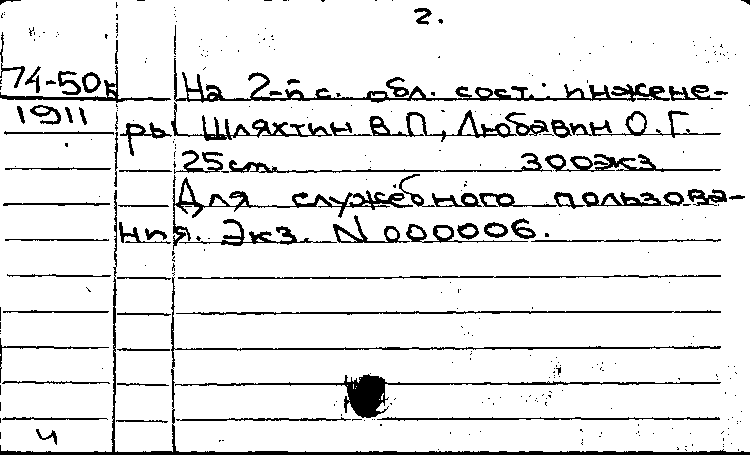 2.
74-50к На 2-й с. обл. сост.: инжене-
1911 ры Шляхтин В.П., Любавин О.Г.
25 см. 300 экз
Для служебного пользова-
ния. Экз. N 000006.
ч